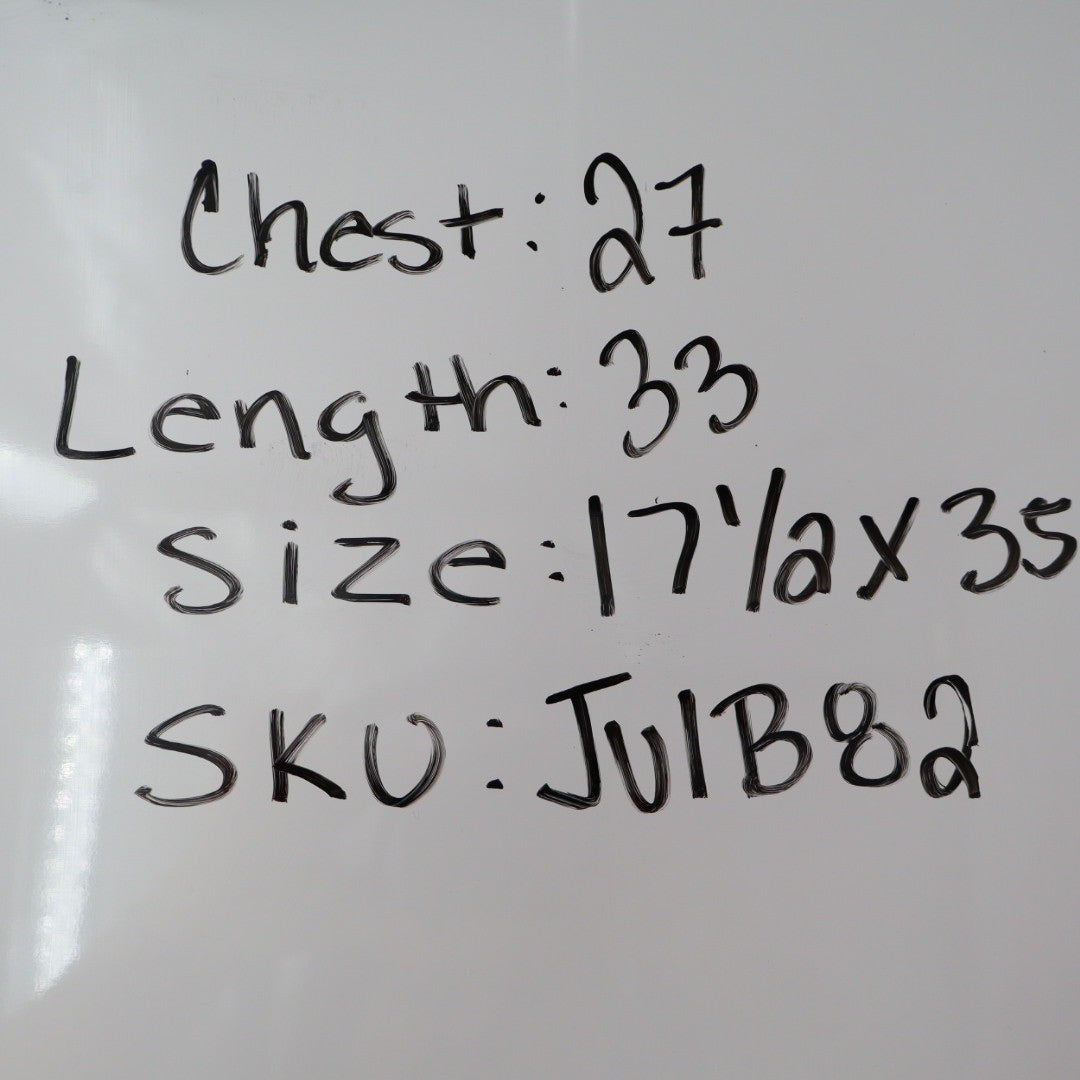 Chest: 27
Length: 33
Size: 17 1/2 x 35
SKU: JUlB82